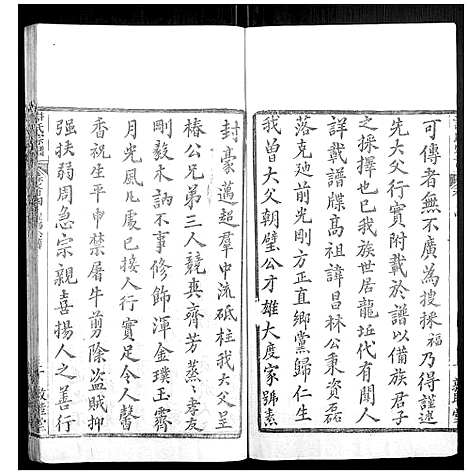 可傳者無不廣為搜採福乃得謹述
先大父行實附載於譜以備族君子
之採擇也已我族世居龍坵代有聞人
詳載譜牒高祖諱昌林公秉資磊
落克廸前光剛方正直鄉黨歸仁生
我曾大父朝璧公才雄大度家號素
封豪邁超羣中流砥柱我大父呈
椿公兄弟三人競爽齊芳大父孝友
剛毅木訥不事修飾渾金璞玉霽
月光風凡處已接人行實足令人馨
香祝生平申禁屠牛剪除盜賊抑
强扶弱周急宗親喜揚人之善行